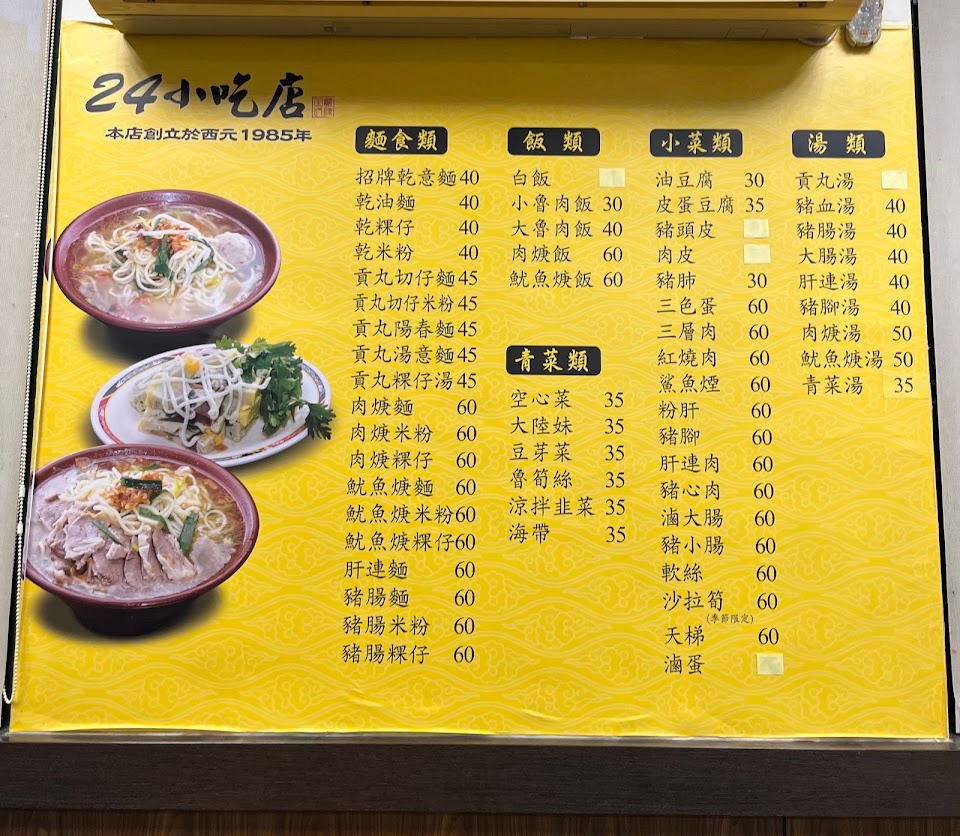 24小吃店
本店創立於西元1985年
麵食類
招牌乾意麵40
乾油麵 40
乾粿仔 40
乾米粉 40
貢丸切仔麵45
貢丸切仔米粉45
貢丸陽春麵45
貢丸湯意麵45
貢丸粿仔湯45
肉焿麵 60
肉焿米粉 60
肉焿粿仔 60
魷魚焿麵 60
魷魚焿米粉60
魷魚焿粿仔60
肝連麵 60
豬腸麵 60
豬腸米粉 60
豬腸粿仔 60
飯類
白飯
小魯肉飯 30
大魯肉飯 40
肉焿飯 60
魷魚焿飯 60
青菜類
空心菜 35
大陸妹 35
豆芽菜 35
魯筍絲 35
涼拌韭菜 35
海帶 35
小菜類
油豆腐 30
皮蛋豆腐 35
豬頭皮
肉皮
豬肺 30
三色蛋 60
三層肉 60
紅燒肉 60
鯊魚煙 60
粉肝 60
豬腳 60
肝連肉 60
豬心肉 60
滷大腸 60
豬小腸 60
軟絲 60
沙拉筍 60
(季節限定)
天梯 60
滷蛋
湯類
貢丸湯
豬血湯 40
豬腸湯 40
大腸湯 40
肝連湯 40
豬腳湯 40
肉焿湯 50
魷魚焿湯 50
青菜湯 35